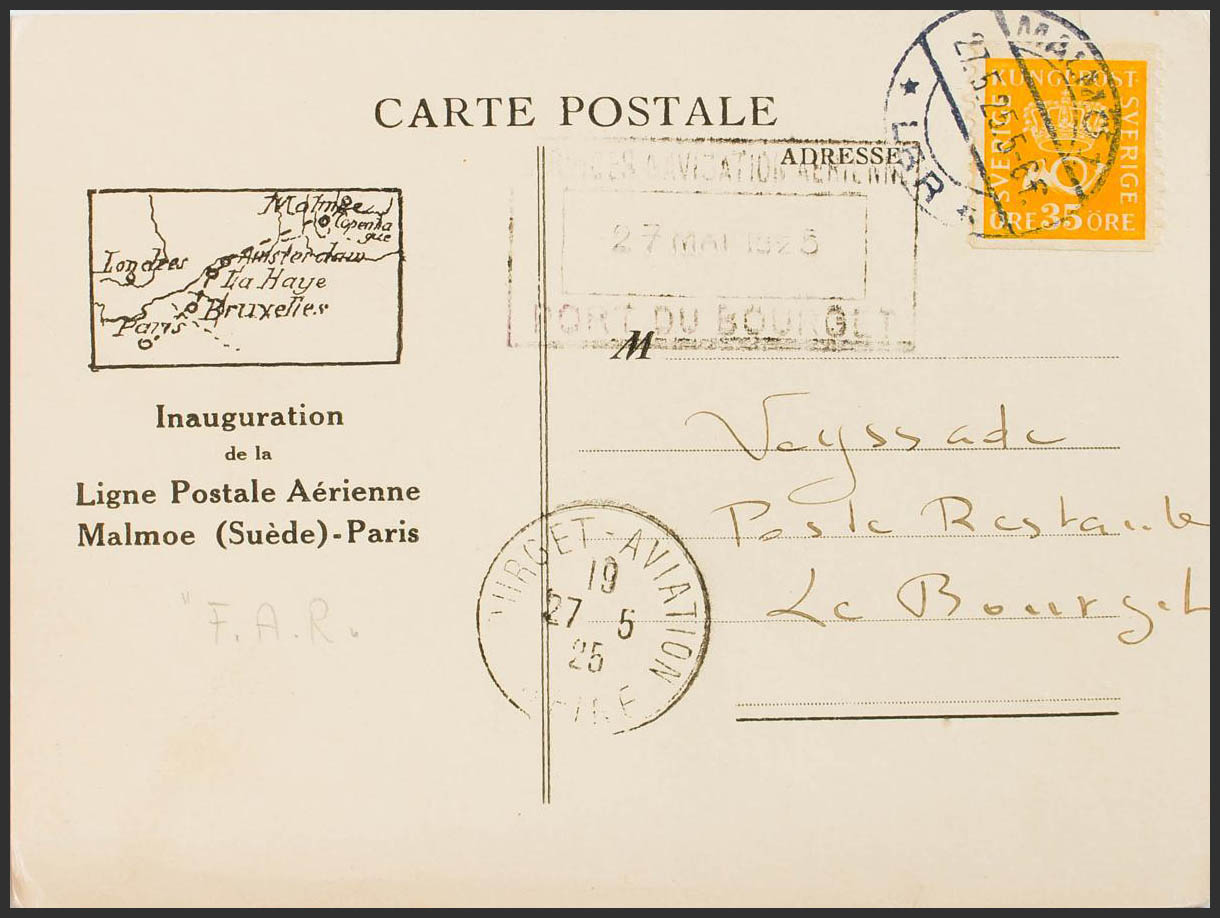 CARTE POSTALE
ADRESSE
NAVIGATION AÉRIENNE
27 MAI 1925
PORT DU BOURGET
MALMÖ 1
27.5.25.5-6E.
LBR
KUNGL POST
SVERIGE
SVERIGE
ÖRE 35 ÖRE
Malmoe
Copenha
gue
Londres
Amsterdam
La Haye
Bruxelles
Paris
Inauguration
de la
Ligne Postale Aérienne
Malmoe (Suède)-Paris
"F.A.R.
M
Veyssade
Poste Restante
Le Bourget
BOURGET-AVIATION
19
27 5
25
SEINE